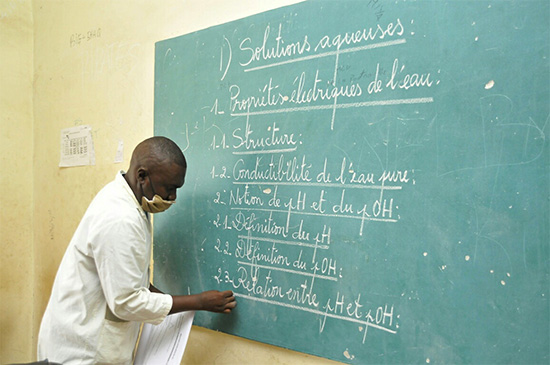 I) Solutions aqueuses:
1_ Propriétés électriques de l'eau:
1-1. Structure:
1-2. Conductibilité de l'eau pure:
2_ Notion de pH et du pOH:
2.1_ Définition du pH
2.2. Définition du pOH:
2.3_ Relation entre pH et pOH: